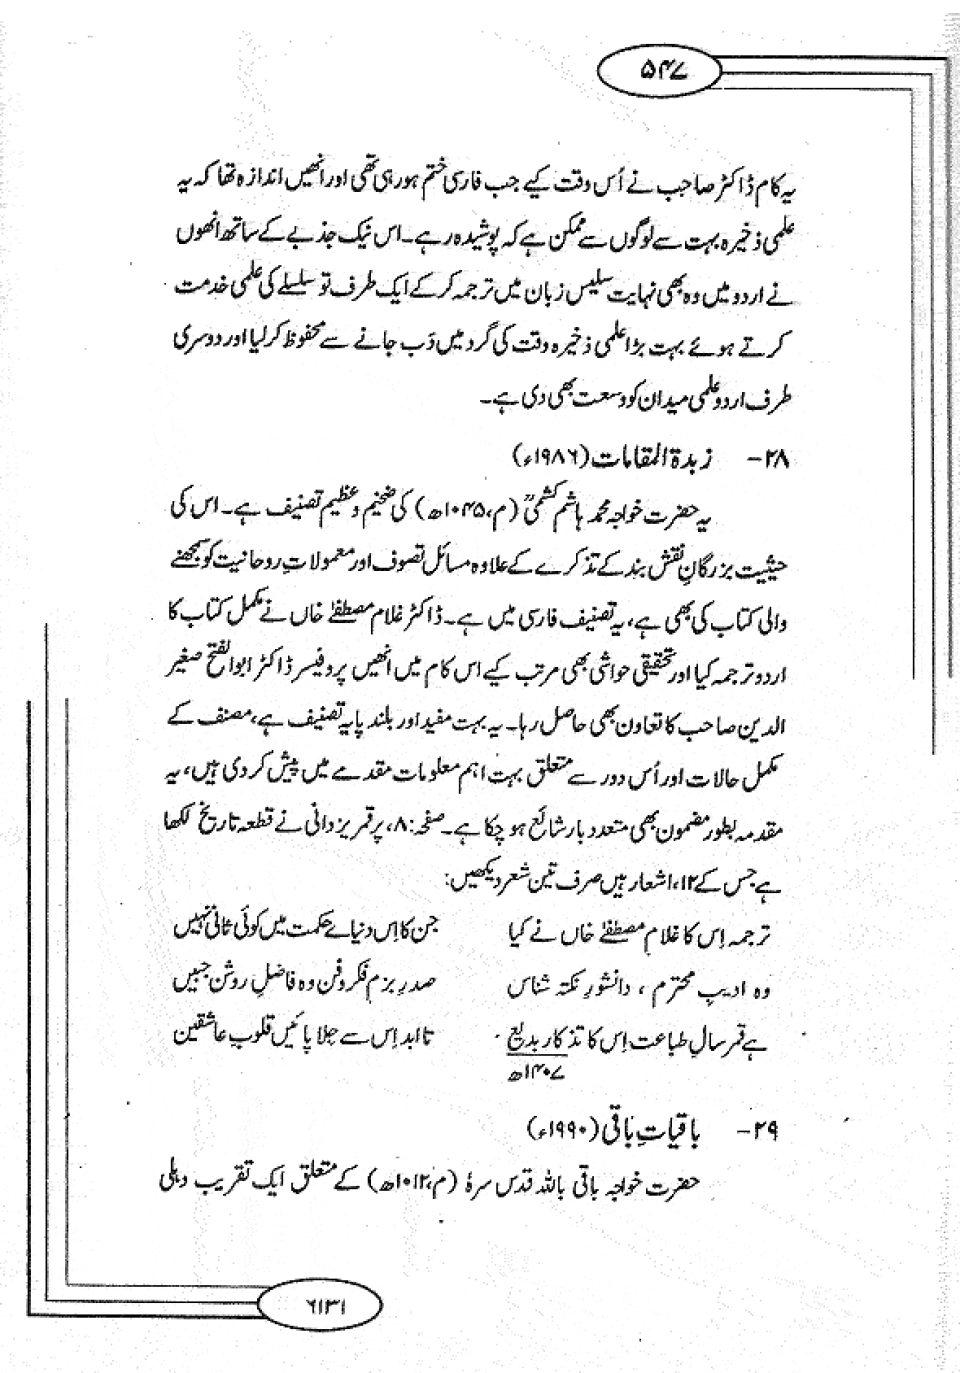 ۵۴۷
یہ کام ڈاکٹر صاحب نے اُس وقت کیے جب فارسی ختم ہورہی تھی اور انھیں اندازہ تھا کہ یہ
علمی ذخیرہ بہت سے لوگوں سے ممکن ہے کہ پوشیدہ رہے۔ اس نیک جذبے کے ساتھ انھوں
نے اردو میں وہ بھی نہایت سلیس زبان میں ترجمہ کرکے ایک طرف تو سلسلے کی علمی خدمت
کرتے ہوئے بہت بڑا علمی ذخیرہ وقت کی گرد میں دَب جانے سے محفوظ کرلیا اور دوسری
طرف اردو علمی میدان کو وسعت بھی دی ہے۔
۲۸- زبدۃ المقامات (۱۹۸۶ء)
یہ حضرت خواجہ محمد ہاشم کشمیؒ (م،۱۰۴۵ھ) کی ضخیم و عظیم تصنیف ہے۔ اس کی
حیثیت بزرگانِ نقش بند کے تذکرے کے علاوہ مسائل تصوف اور معمولاتِ روحانیت کو سمجھنے
والی کتاب کی بھی ہے، یہ تصنیف فارسی میں ہے۔ ڈاکٹر غلام مصطفےٰ خاں نے مکمل کتاب کا
اردو ترجمہ کیا اور تحقیقی حواشی بھی مرتب کیے اس کام میں انھیں پروفیسر ڈاکٹر ابوالفتح صغیر
الدین صاحب کا تعاون بھی حاصل رہا۔ یہ بہت مفید اور بلند پایہ تصنیف ہے، مصنف کے
مکمل حالات اور اُس دور سے متعلق بہت اہم معلومات مقدمے میں پیش کردی ہیں، یہ
مقدمہ بطور مضمون بھی متعدد بار شائع ہو چکا ہے۔ صفحہ:۸، پر قمر یزدانی نے قطعہ تاریخ لکھا
ہے جس کے ۱۲، اشعار ہیں صرف تین شعر دیکھیں:
ترجمہ اِس کا غلام مصطفےٰ خاں نے کیا جن کا اِس دنیائے حکمت میں کوئی ثانی نہیں
وہ ادیبِ محترم ، دانشورِ نکتہ شناس صدرِ بزمِ فکر و فن وہ فاضلِ روشن جبیں
ہے قمر سال طباعت اِس کا تذکار بدیع تا ابد اِس سے جلا پائیں قلوبِ عاشقین
۱۴۰۷ھ
۲۹- باقیاتِ باقی (۱۹۹۰ء)
حضرت خواجہ باقی باللہ قدس سرہٗ (م،۱۰۱۲ھ) کے متعلق ایک تقریب دہلی
۶۱۳۱